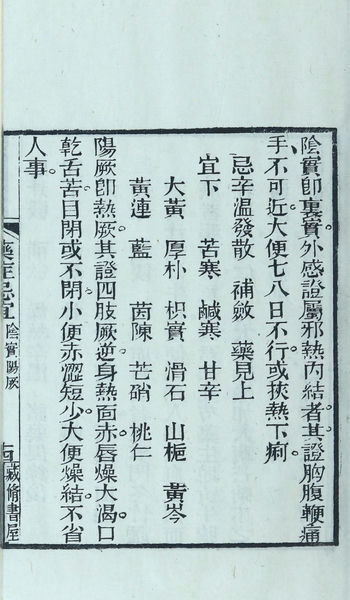 陰實卽裏實外感證屬邪熱內結者其證胸腹鞕痛
手不可近大便七八日不行或挾熱下痢
忌辛温發散 補斂 藥見上
宜下 苦寒 鹹寒 甘辛
大黃 厚朴 枳實 滑石 山梔 黃芩
黃連 藍 茵陳 芒硝 桃仁
陽厥卽熱厥其證四肢厥逆身熱面赤唇燥大渴口
乾舌苦目閉或不閉小便赤澀短少大便燥結不省
人事
藥症忌宜
陰實陽厥
藏脩書屋